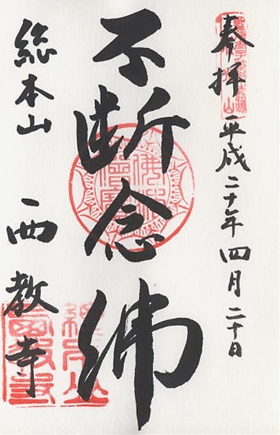 奉拝 平成二十年四月二十日
不断念佛
総本山 西教寺